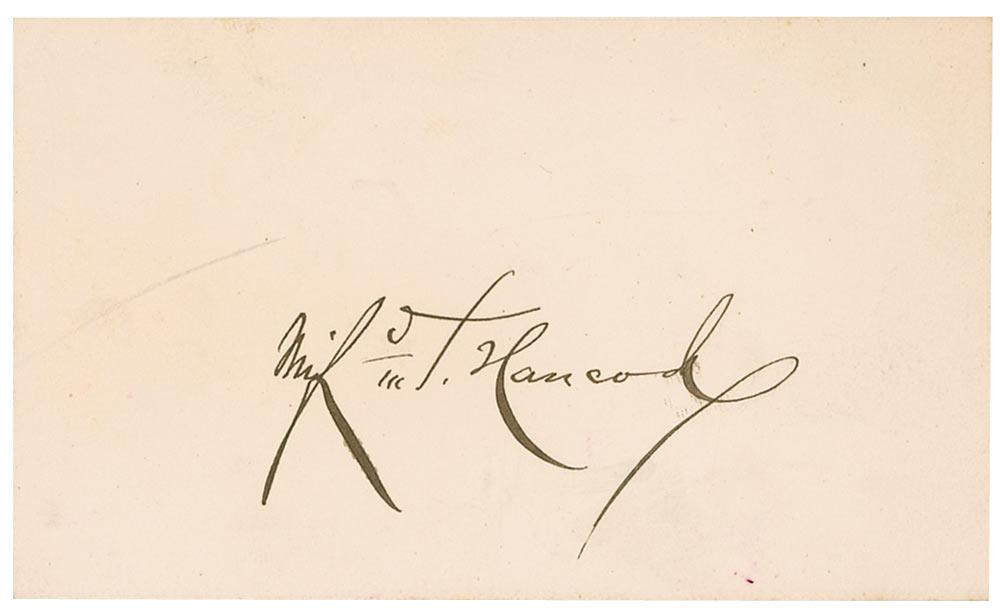 Winfd S. Hancock